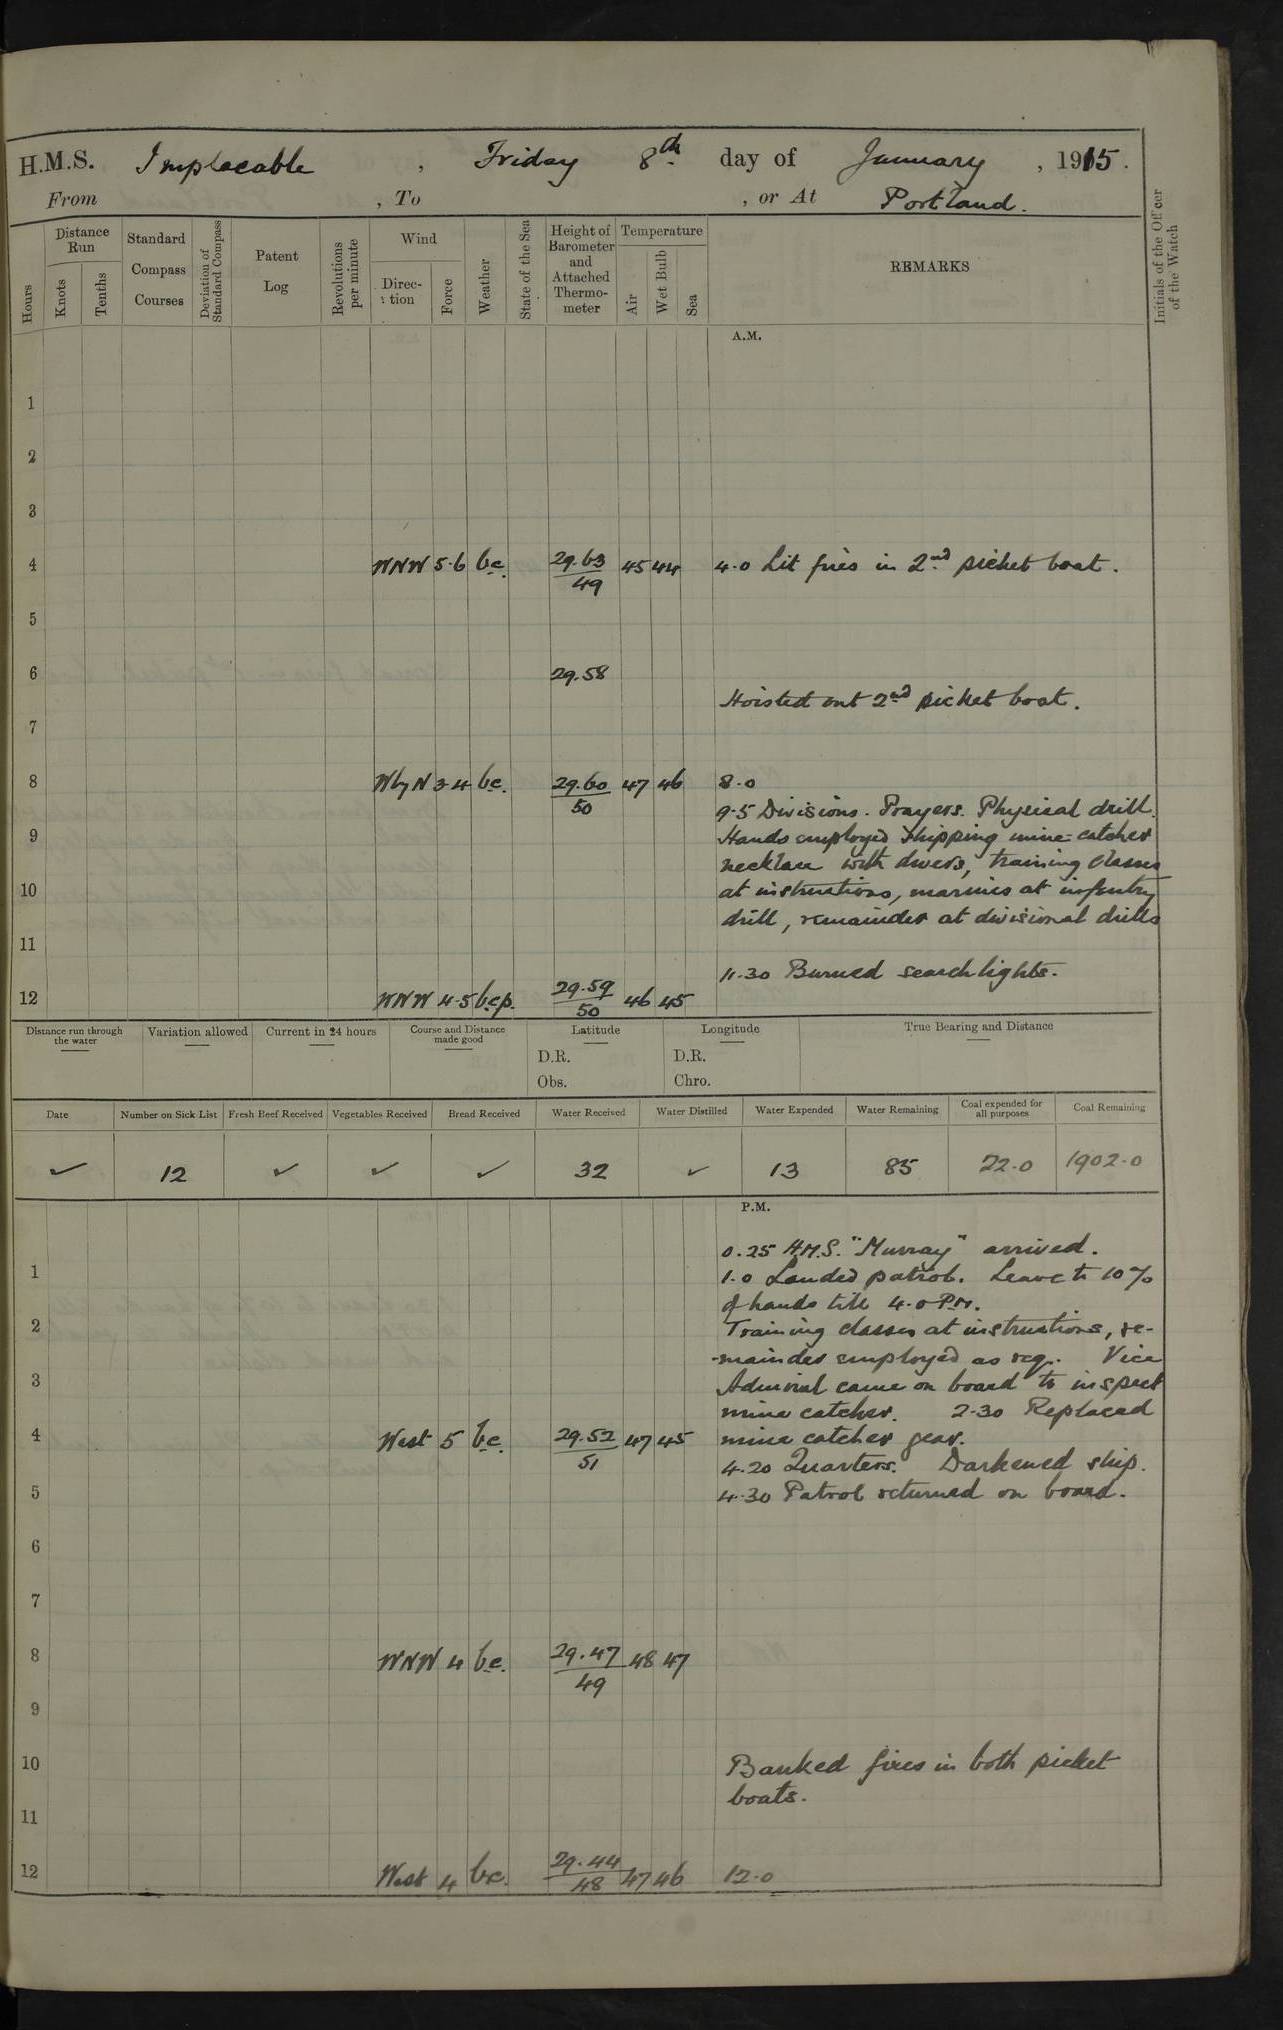 H.M.S. Implacable , Friday 8th day of January , 1915.
From , To , or At Portland.
Hours
Distance Run
Knots
Tenths
Standard Compass Courses
Deviation of Standard Compass
Patent Log
Revolutions per minute
Wind
Direction
Force
Weather
State of the Sea
Height of Barometer and Attached Thermometer
Temperature
Air
Wet Bulb
Sea
REMARKS
Initials of the Officer of the Watch
A.M.
1
2
3
4 WNW 5.6 bc. 29.63 / 49 45 44 4.0 Lit fires in 2nd picket boat.
5
6 29.58
Hoisted out 2nd picket boat.
7
8 WbyN 3-4 bc. 29.60 / 50 47 46 8.0
9.5 Divisions. Prayers. Physical drill.
9 Hands employed shipping mine-catcher
necklace with divers, training classes
10 at instructions, marines at infantry
drill, remainder at divisional drills
11
11.30 Burned searchlights.
12 WNW 4.5 bcp. 29.59 / 50 46 45
Distance run through the water
Variation allowed
Current in 24 hours
Course and Distance made good
Latitude
D.R.
Obs.
Longitude
D.R.
Chro.
True Bearing and Distance
Date Number on Sick List Fresh Beef Received Vegetables Received Bread Received Water Received Water Distilled Water Expended Water Remaining Coal expended for all purposes Coal Remaining
✓ 12 ✓ ✓ ✓ 32 ✓ 13 85 22.0 1902.0
P.M.
0.25 H.M.S. "Murray" arrived.
1 1.0 Landed patrol. Leave to 10%
of hands till 4.0 P.M.
2 Training classes at instructions, re-
-mainder employed as req. Vice
3 Admiral came on board to inspect
mine catcher. 2.30 Replaced
4 West 5 bc. 29.52 / 51 47 45 mine catcher gear.
4.20 Quarters. Darkened ship.
5 4.30 Patrol returned on board.
6
7
8 WNW 4 bc. 29.47 / 49 48 47
9
10 Banked fires in both picket
boats.
11
12 West 4 bc. 29.44 / 48 47 46 12.0